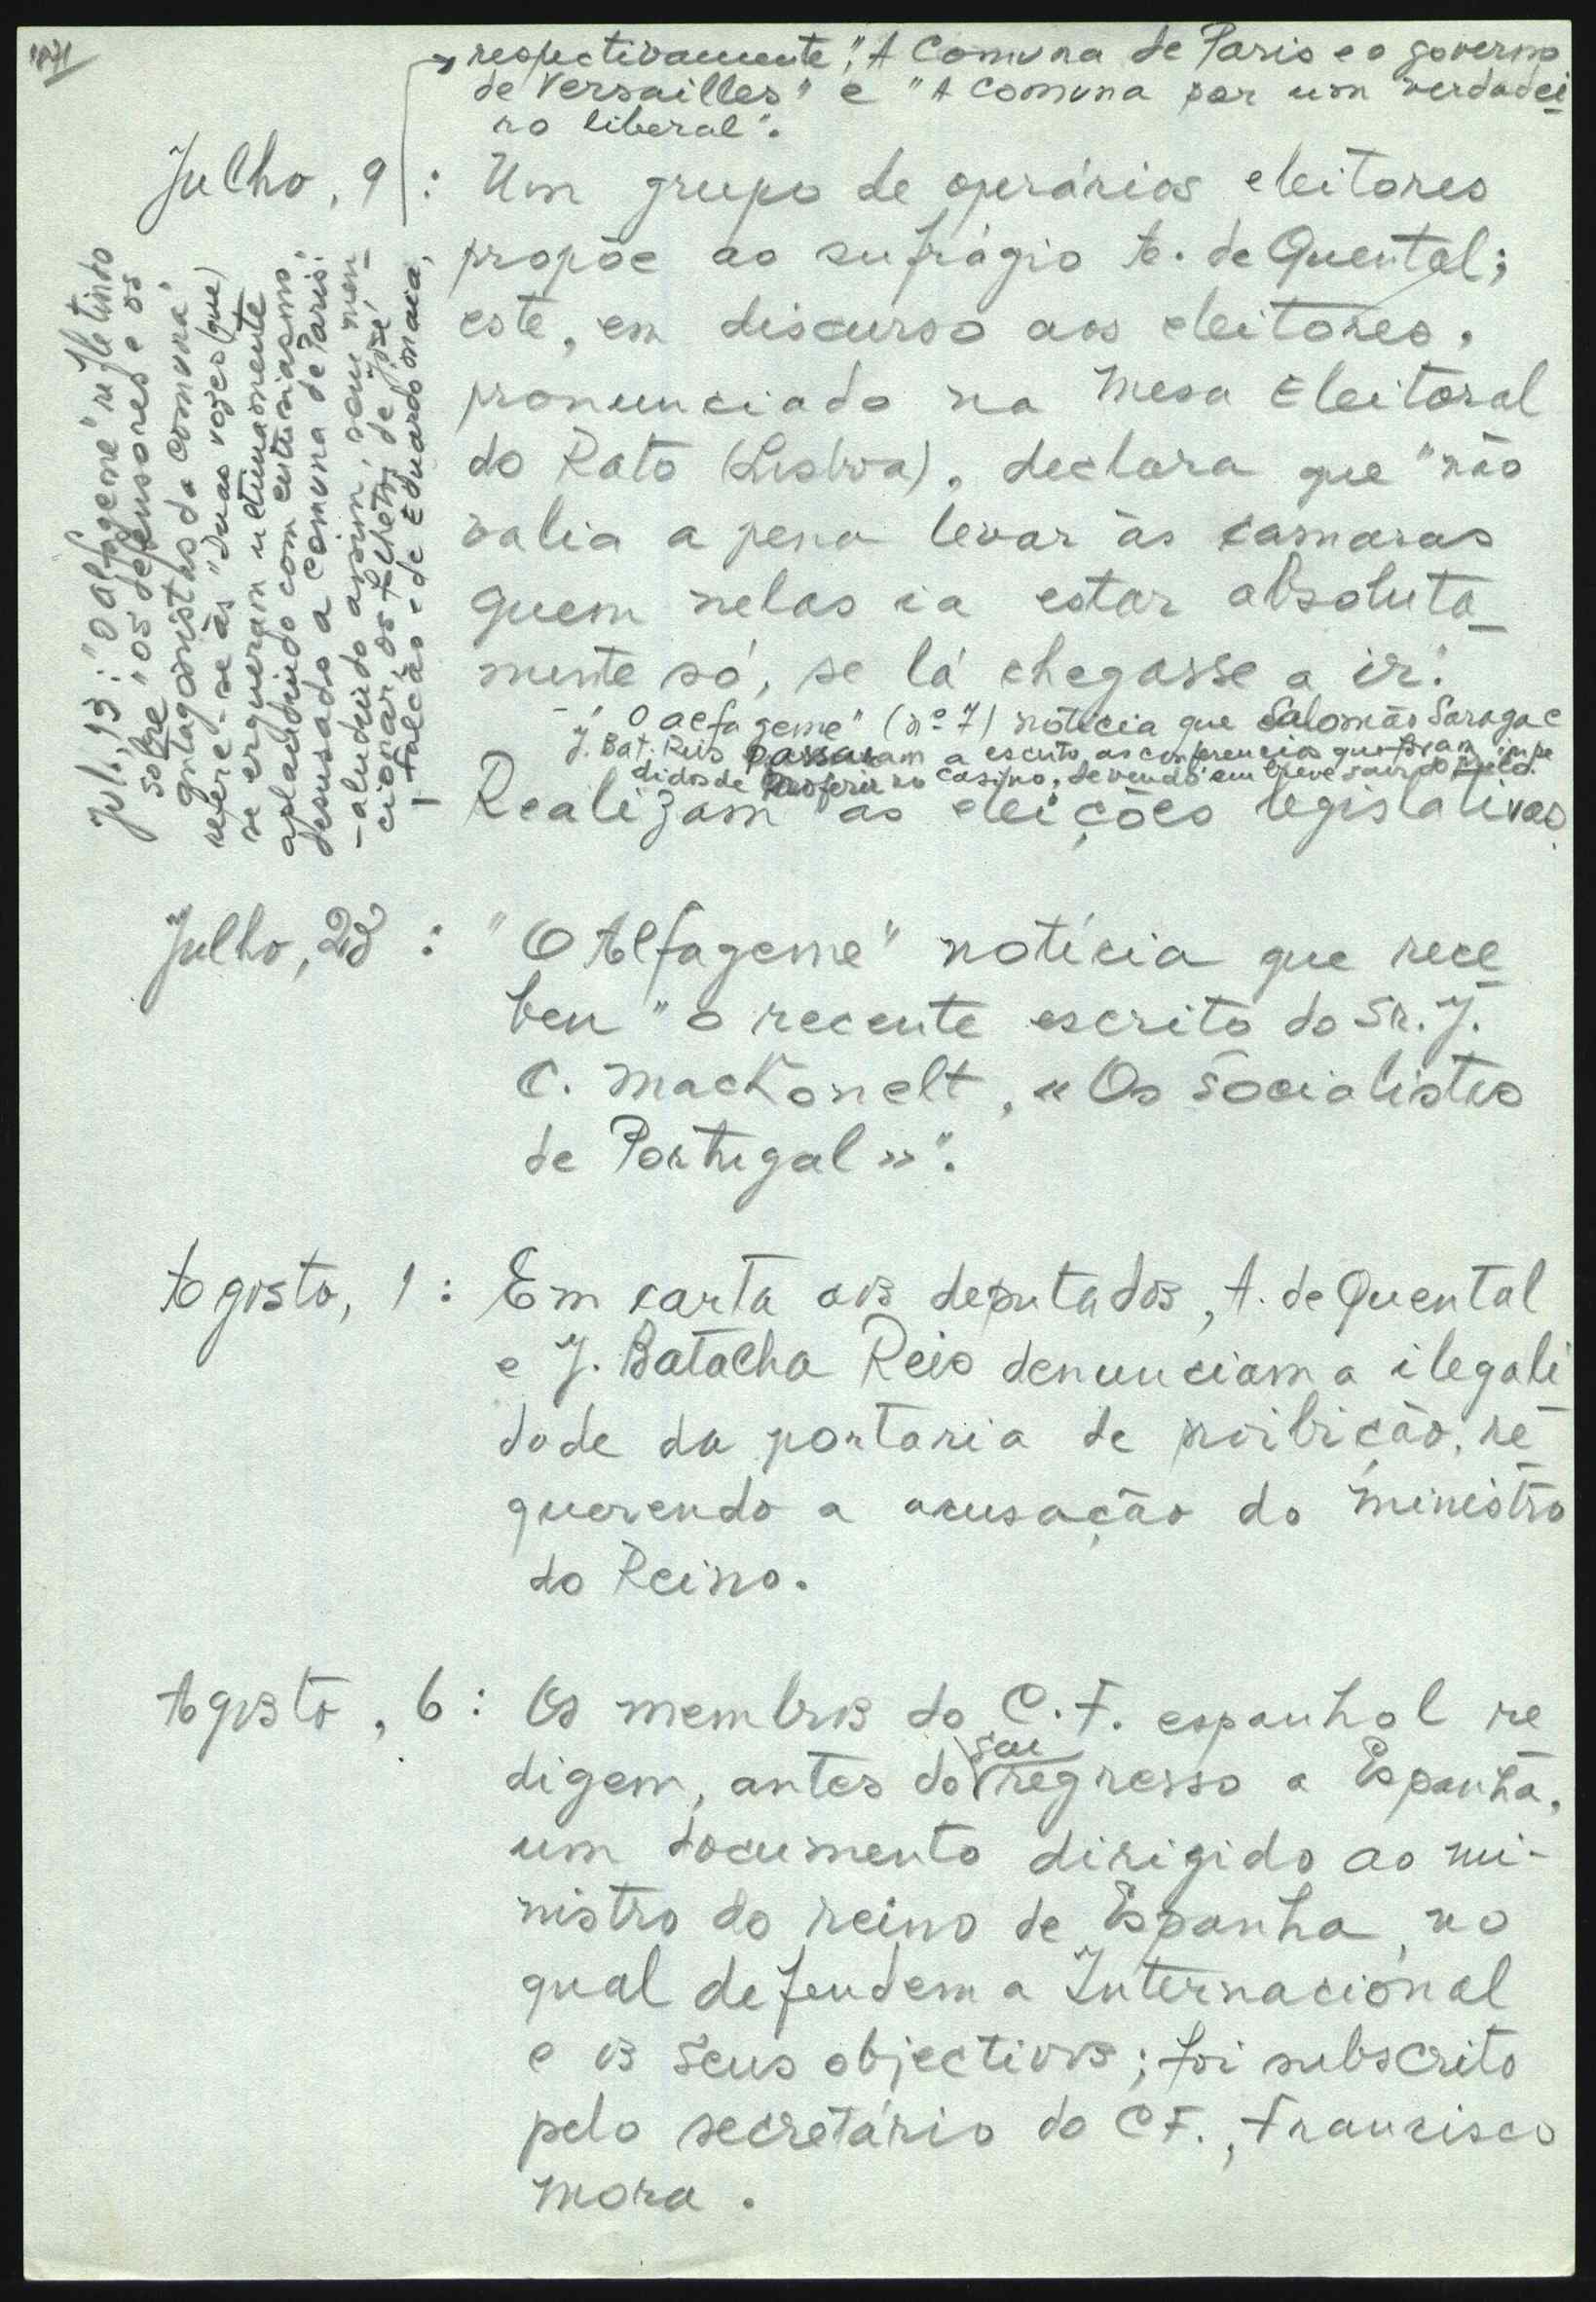 1871
respectivamente, "A Comuna de Paris e o governo
de Versailles" e "A Comuna por um verdadei
ro liberal".
Julho, 9 : Um grupo de operários eleitores
propõe ao sufrágio A. de Quental;
este, em discurso aos eleitores,
pronunciado na Mesa Eleitoral
do Rato (Lisboa), declara que "não
valia a pena levar às camaras
quem nelas ia estar absoluta_
mente só, se lá chegasse a ir".
- "O Alfageme" (nº 7) noticia que Salomão Saraga e
J. Bat. Reis passaram a escrito as conferencias que foram impe
didos de proferir no casino, devendo em breve sair do
Realizam as eleições legislativas.
Jul., 13: "O Alfageme" refletindo
sobre "os defensores e os
antagonistas da comuna",
refere-se às "Duas vozes (que)
se ergueram ultimamente
aplaudindo com entusiasmo
desusado a Comuna de Paris".
- aludindo assim, sem men_
cionar, os folhetos de José
Falcão e de Eduardo Maia,
Julho, 23 : "O Alfageme" notícia que rece
beu "o recente escrito do Sr. J.
C. MacKonelt, «Os Socialistas
de Portugal»".
Agosto, 1 : Em carta aos deputados, A. de Quental
e J. Batalha Reis denunciam a ilegali
dade da portaria de proibição, re
querendo a acusação do ministro
do Reino.
Agosto, 6 : Os membros do C.F. espanhol re
digem, antes do seu regresso a Espanha,
um documento dirigido ao mi-
nistro do reino de Espanha, no
qual defendem a Internacional
e os seus objectivos; foi subscrito
pelo secretário do CF., Francisco
Mora.